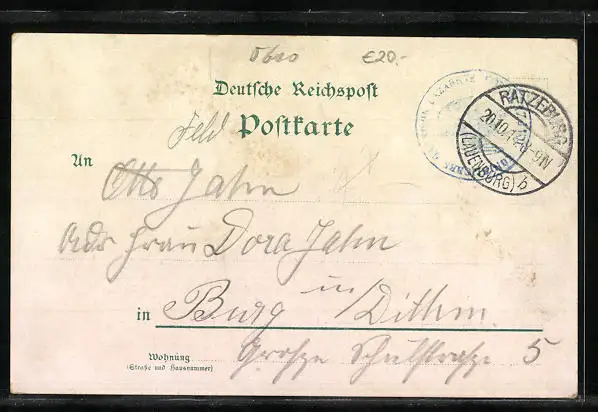 €20.-
Deutsche Reichspost
Feld Postkarte
RATZEBURG
20.10.14.8-9N
(LAUENBURG) b
An
Otto Jahn
Adr Frau Dora Jahn
in
in Burg Dithm.
Wohnung
(Straße und Hausnummer)
Große Schulstraße 5